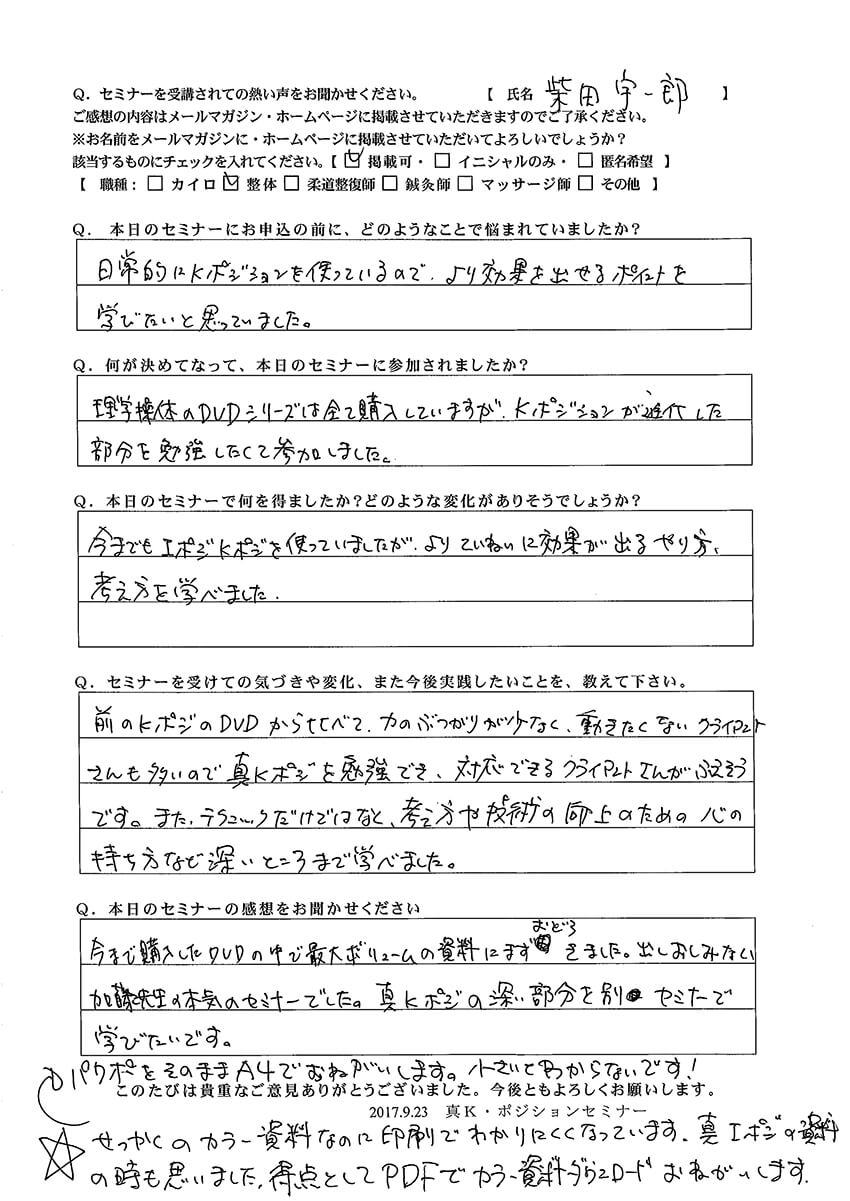 Q．セミナーを受講されての熱い声をお聞かせください。　【 氏名 柴田宇一郎 】
ご感想の内容はメールマガジン・ホームページに掲載させていただきますのでご了承ください。
※お名前をメールマガジンに・ホームページに掲載させていただいてよろしいでしょうか？
該当するものにチェックを入れてください。【 ☑ 掲載可・ □ イニシャルのみ・ □ 匿名希望 】
【 職種： □ カイロ ☑ 整体 □ 柔道整復師 □ 鍼灸師 □ マッサージ師 □ その他 】
Q． 本日のセミナーにお申込の前に、どのようなことで悩まれていましたか？
日常的にKポジションを使っているので、より効果を出せるポイントを
学びたいと思っていました。
Q．何が決めてなって、本日のセミナーに参加されましたか？
理学操体のDVDシリーズは全て購入していますが、Kポジションが進化した
部分を勉強したくて参加しました。
Q．本日のセミナーで何を得ましたか？どのような変化がありそうでしょうか？
今までもIポジKポジを使っていましたが、よりていねいに効果が出るやり方、
考え方を学べました.
Q．セミナーを受けての気づきや変化、また今後実践したいことを、教えて下さい。
前のKポジのDVDからくらべて、力のぶつかりが少なく、動きたくないクライアント
さんも多いので真Kポジを勉強でき、対応できるクライアントさんがふえそう
です。また、テクニックだけではなく、考え方や技術の向上のための心の
持ち方など深いところまで学べました。
Q．本日のセミナーの感想をお聞かせください
今まで購入したDVDの中で最大ボリュームの資料にまずおどろきました。出しおしみない
加藤先生の本気のセミナーでした。真Kポジの深い部分を別セミナーで
学びたいです。
パワポをそのままA4でおねがいします。小さいとわからないです！
このたびは貴重なご意見ありがとうございました。今後ともよろしくお願いします。
2017.9.23　真K・ポジションセミナー
☆ せっかくのカラー資料なのに印刷でわかりにくくなっています。真Iポジの資料
の時も思いました。得点としてPDFでカラー資料ダウンロードおねがいします.